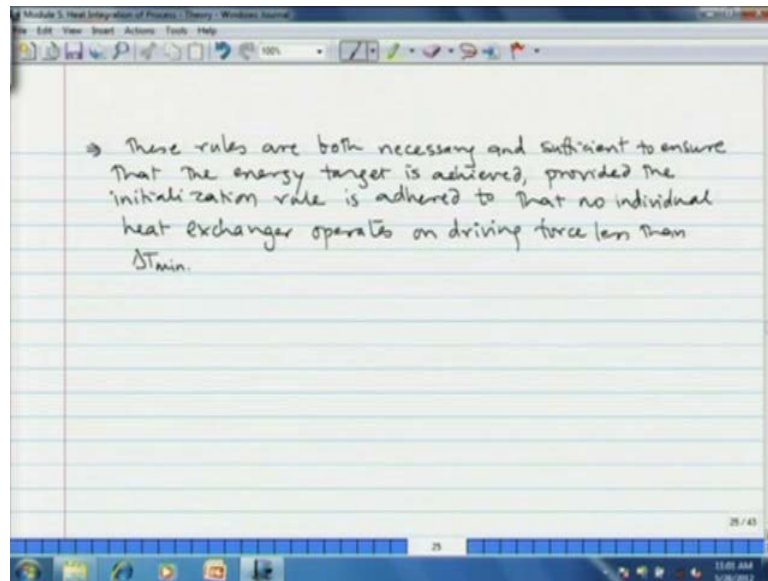 Module 5. Heat Integration of Process - Theory - Windows Journal
File Edit View Insert Actions Tools Help
100%
⇒ These rules are both necessary and sufficient to ensure
that the energy target is achieved, provided the
initialization rule is adhered to that no individual
heat exchanger operates on driving force less than
ΔTmin.
25 / 43
25
11:01 AM